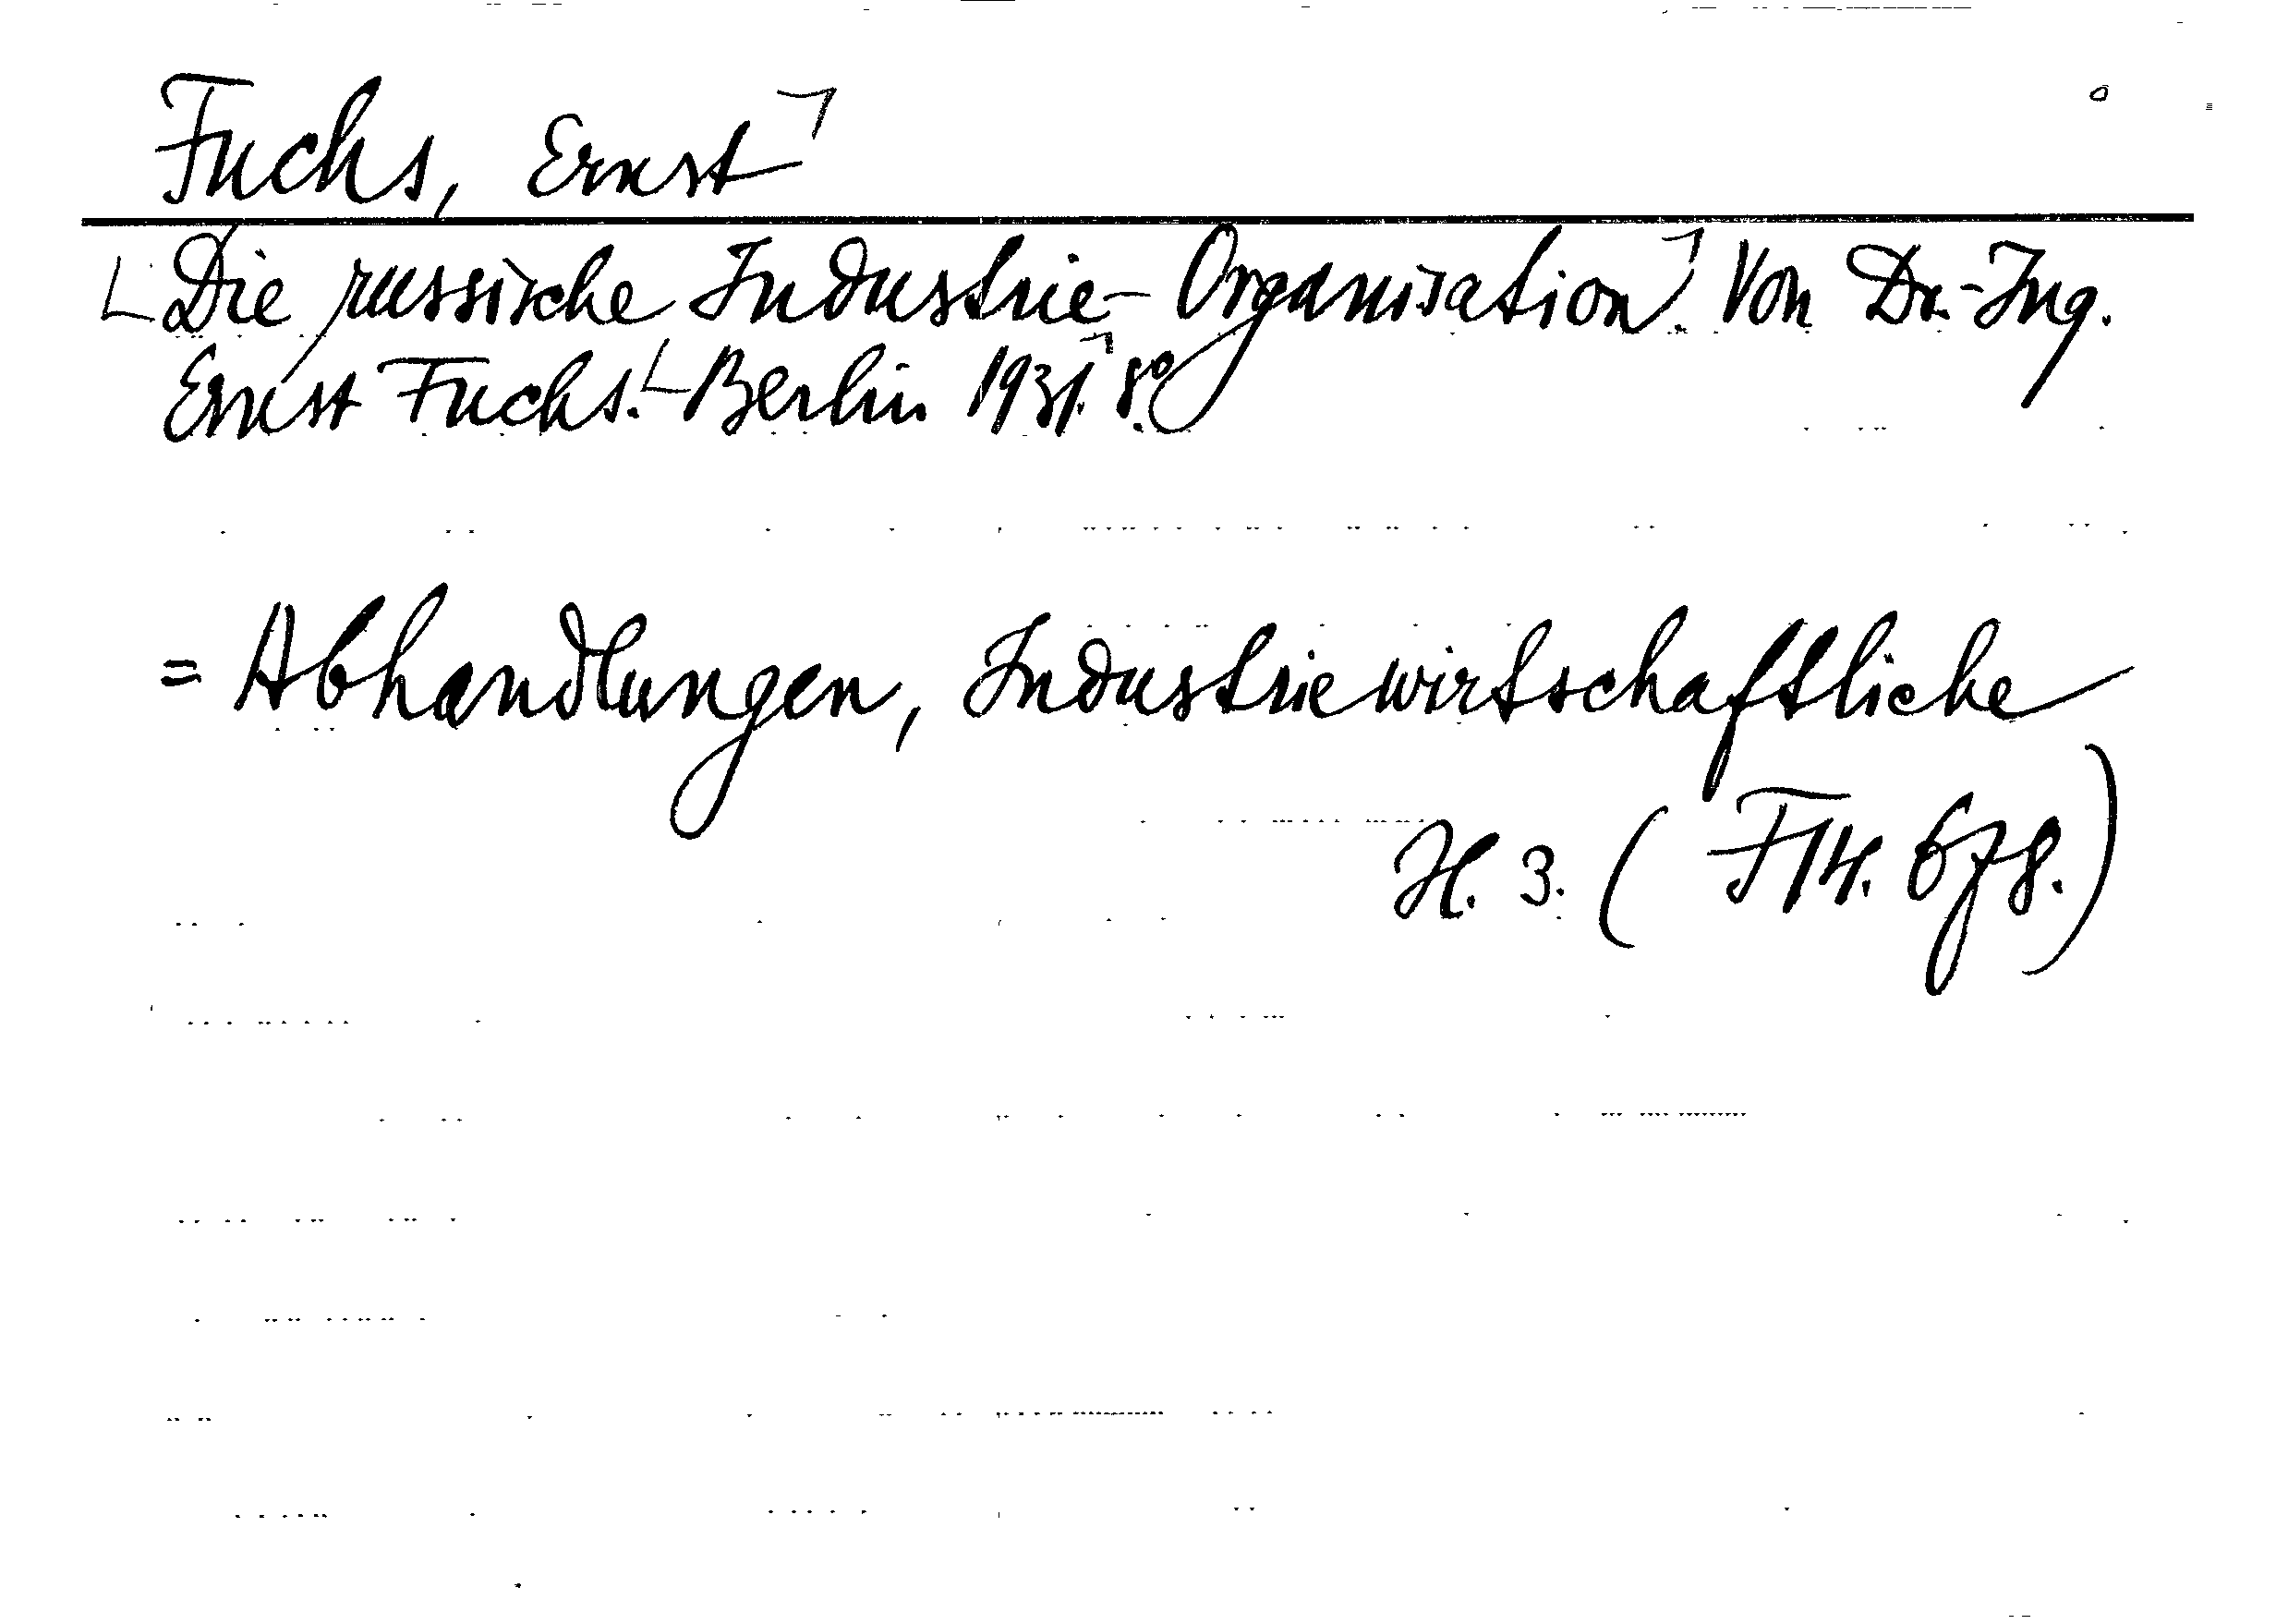 Fuchs, Ernst
Die russische Industrie-Organisation. Von Dr.-Ing.
Ernst Fuchs. Berlin 1931. 8°.
= Abhandlungen, Industriewirtschaftliche
H. 3. (F 14. 678.)